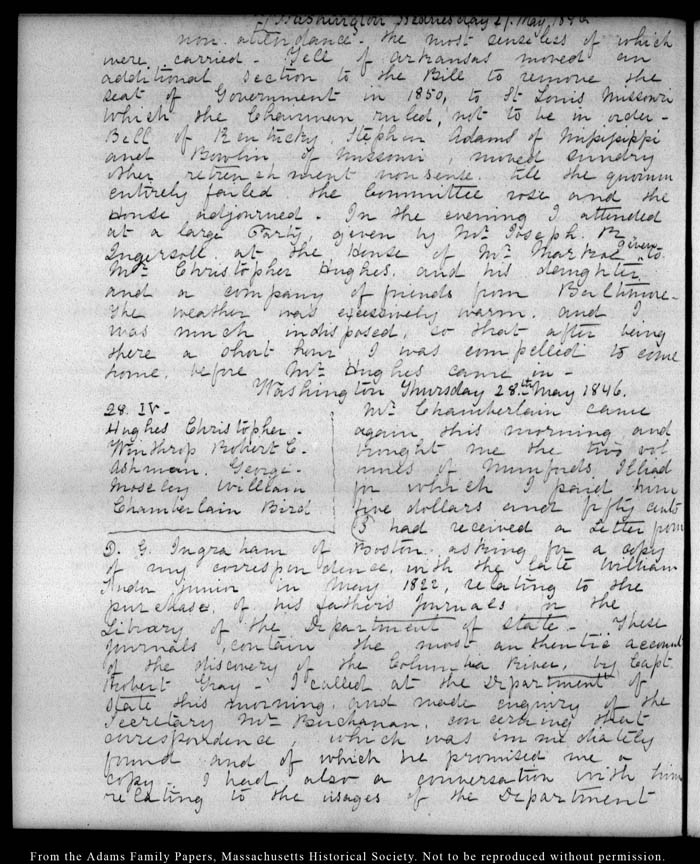 Washington Wednesday 27. May 1846
non-attendance - the most senseless of which
were carried - Yell of Arkansas moved an
additional section to the Bill to remove the
seat of Government in 1850, to St Louis Missouri
which the Chairman ruled, not to be in order -
Bell of Kentucky, Stephen Adams of Mississippi
and Bowlin of Missouri, moved sundry
other retrenchment nonsense till the quorum
entirely failed the Committee rose and the
House adjourned - In the evening I attended
at a large Party, given by Mr Joseph R.
Ingersoll at the House of Mr Markoe given to
Mr Christopher Hughes, and his daughter
and a company of friends from Baltimore -
The weather was excessively warm, and I
was much indisposed, so that after being
there a short hour I was compelled to come
home, before Mr Hughes came in -
Washington Thursday 28th May 1846.
28. IV -
Hughes Christopher -
Winthrop Robert C.
Ashmun. George -
Moseley William
Chamberlain Bird
Mr Chamberlain came
again this morning and
brought me the two vol
umes of Munfords Illiad
for which I paid him
five dollars and fifty cents
I had received a Letter from
D. G. Ingraham of Boston, asking for a copy
of my correspondence, with the late William
Tudor junior in May 1822, relating to the
purchase, of his father's journals, for the
Library of the Department of State - These
journals, contain the most authentic account
of the discovery of the Columbia River, by Capt
Robert Gray - I called at the Department of
State this morning, and made enquiry of the
Secretary Mr Buchanan, concerning that
correspondence, which was immediately
found and of which he promised me a
copy - I had also a conversation with him
relating to the usages of the Department
From the Adams Family Papers, Massachusetts Historical Society. Not to be reproduced without permission.